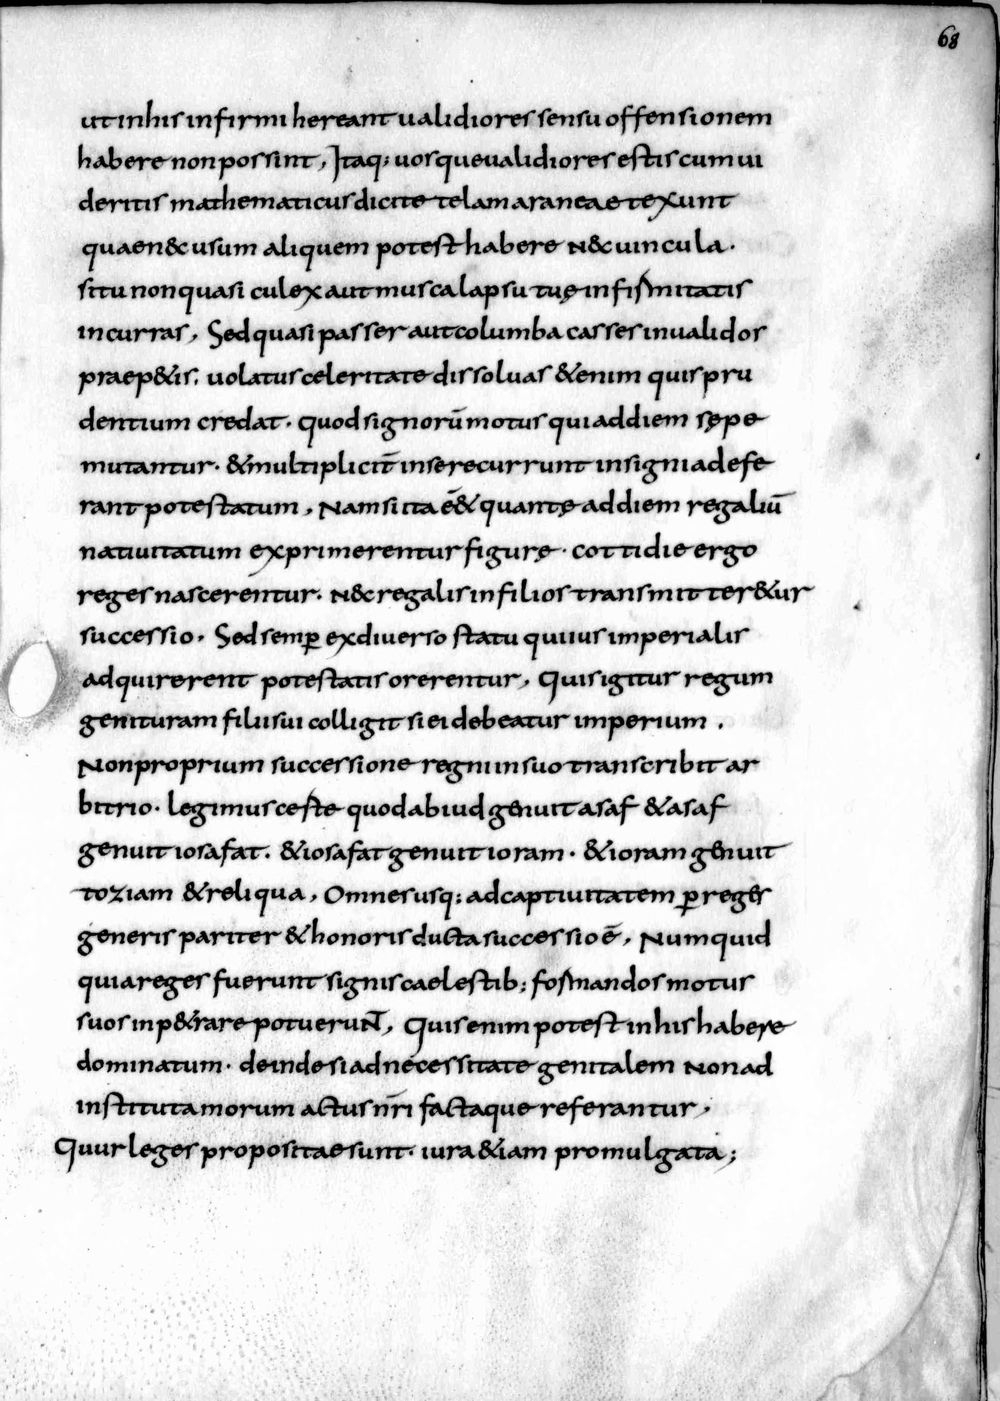 68
ut in his infirmi hereant ualidiores sensu offensionem
habere non possint, Itaq; uos que ualidiores estis cum ui
deritis mathematicus dicite telam araneae texunt
quae n& usum aliquem potest habere n& uincula.
si tu non quasi culex aut musca lapsu tuę infirmitatis
incurras, Sed quasi passer aut columba casses inualidos
praep&is. uolatus celeritate dissoluas &enim quis pru
dentium credat. quod signorū motus qui ad diem sępe
mutantur. & multiplicit̄ in se recurrunt insignia defe
rant potestatum, Nam si ita ē & quantę ad diem regaliū
natiuitatum exprimerentur figurę. cottidie ergo
reges nascerentur. n& regalis in filios transmitter&ur
successio. Sed semp̱ ex diuerso statu qui ius imperialis
adquirerent potestatis orerentur, Quis igitur regum
genituram filii sui colligit si ei debeatur imperium.
Non proprium successione regni in suo transcribit ar
bitrio. legimus certe quod abiud genuit asaf & asaf
genuit iosafat. & iosafat genuit ioram. & ioram genuit
toziam & reliqua, Omnes usq; ad captiuitatem p̱ reges
generis pariter & honoris ducta successio ē, Numquid
quia reges fuerunt signis caelestib; formandos motus
suos inp&rare potuerunt, Quis enim potest in his habere
dominatum. deinde si ad necessitate genitalem non ad
instituta morum actus nr̄i factaque referantur,
Quur leges propositae sunt. iura &iam promulgata;